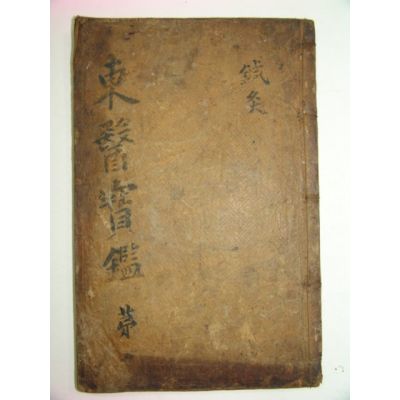 鍼灸
東醫寶鑑